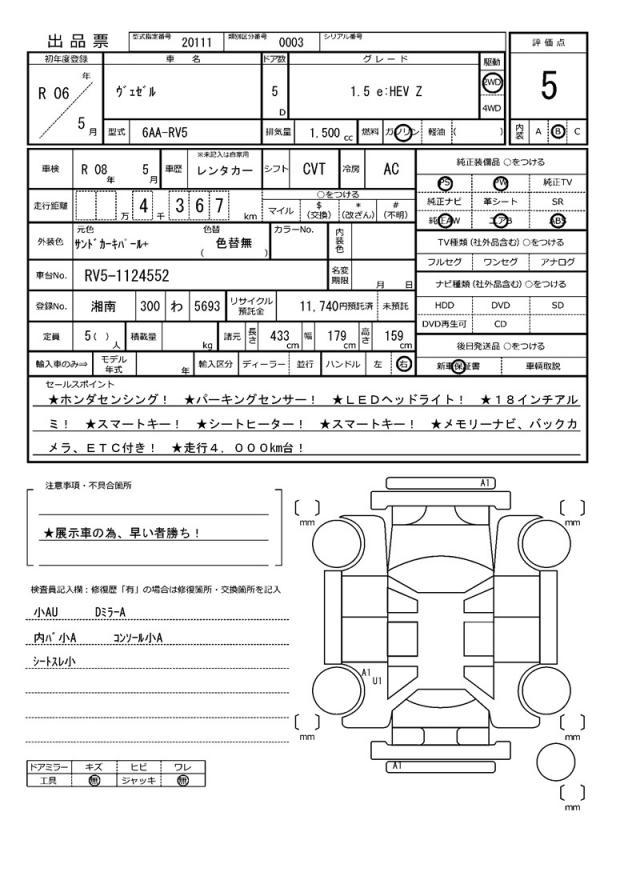 出品票
型式指定番号 20111 類別区分番号 0003 シリアル番号
評価点
5
内装 A B C
初年度登録 車名 ドア数 グレード 駆動
R 06 年 5 月
ヴェゼル
5 D
1.5 e:HEV Z
2WD
4WD
型式 6AA-RV5 排気量 1.500 cc 燃料 ガソリン 軽油 ( )
車検 R 08 年 5 月 車歴 ※未記入は自家用 レンタカー シフト CVT 冷房 AC
走行距離 万 4 千 3 6 7 km
○をつける
マイル $ (交換) * (改ざん) # (不明)
外装色 元色 サンドカーキパール+ 色替 ( 色替無 ) カラーNo. 内装色
車台No. RV5-1124552 名変期限 月 日
登録No. 湘南 300 わ 5693 リサイクル預託金 11,740円預託済 未預託
定員 5( ) 人 積載量 kg 諸元 長さ 433 cm 幅 179 cm 高さ 159 cm
輸入車のみ⇒ モデル年式 年 輸入区分 ディーラー 並行 ハンドル 左 右
純正装備品 ○をつける
PS PW 純正TV
純正ナビ 革シート SR
純正AW エアB ABS
TV種類 (社外品含む) ○をつける
フルセグ ワンセグ アナログ
ナビ種類 (社外品含む) ○をつける
HDD DVD SD
DVD再生可 CD
後日発送品 ○をつける
新車保証書 車輌取説
セールスポイント
★ホンダセンシング! ★パーキングセンサー! ★LEDヘッドライト! ★18インチアル
ミ! ★スマートキー! ★シートヒーター! ★スマートキー! ★メモリーナビ、バックカ
メラ、ETC付き! ★走行4.000km台!
注意事項・不具合箇所
★展示車の為、早い者勝ち!
検査員記入欄:修復歴「有」の場合は修復箇所・交換箇所を記入
小AU DミラーA
内バ小A コンソール小A
シートスレ小
ドアミラー キズ ヒビ ワレ
工具 無 ジャッキ 無
A1
[ ] mm
[ ] mm
A1
U1
[ ] mm
[ ] mm
A1
[ ] mm